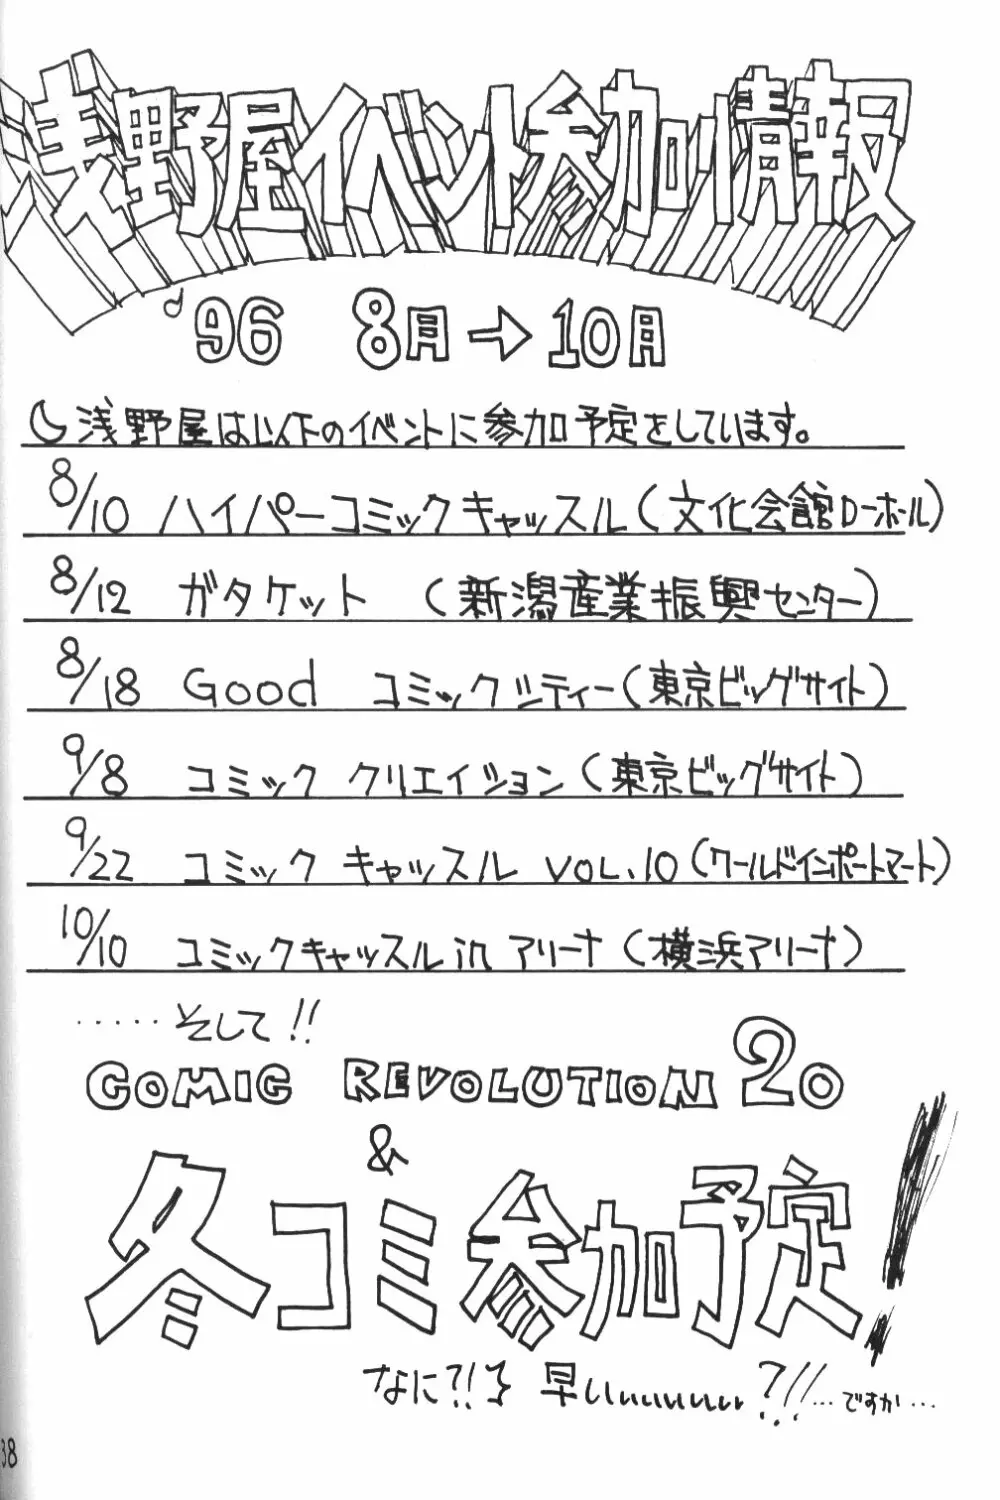 浅野屋イベント参加情報
'96 8月→10月
浅野屋は以下のイベントに参加予定をしています。
8/10 ハイパーコミックキャッスル(文化会館Dーホール)
8/12 ガタケット (新潟産業振興センター)
8/18 Good コミックシティー(東京ビッグサイト)
9/8 コミック クリエイション(東京ビッグサイト)
9/22 コミック キャッスル VOL.10(ワールドインポートマート)
10/10 コミックキャッスル in アリーナ(横浜アリーナ)
・・・・・そして!!
COMIC REVOLUTION 20
&
冬コミ参加予定!
なに?!! 早いいいいいいい?!!…ですか…
38